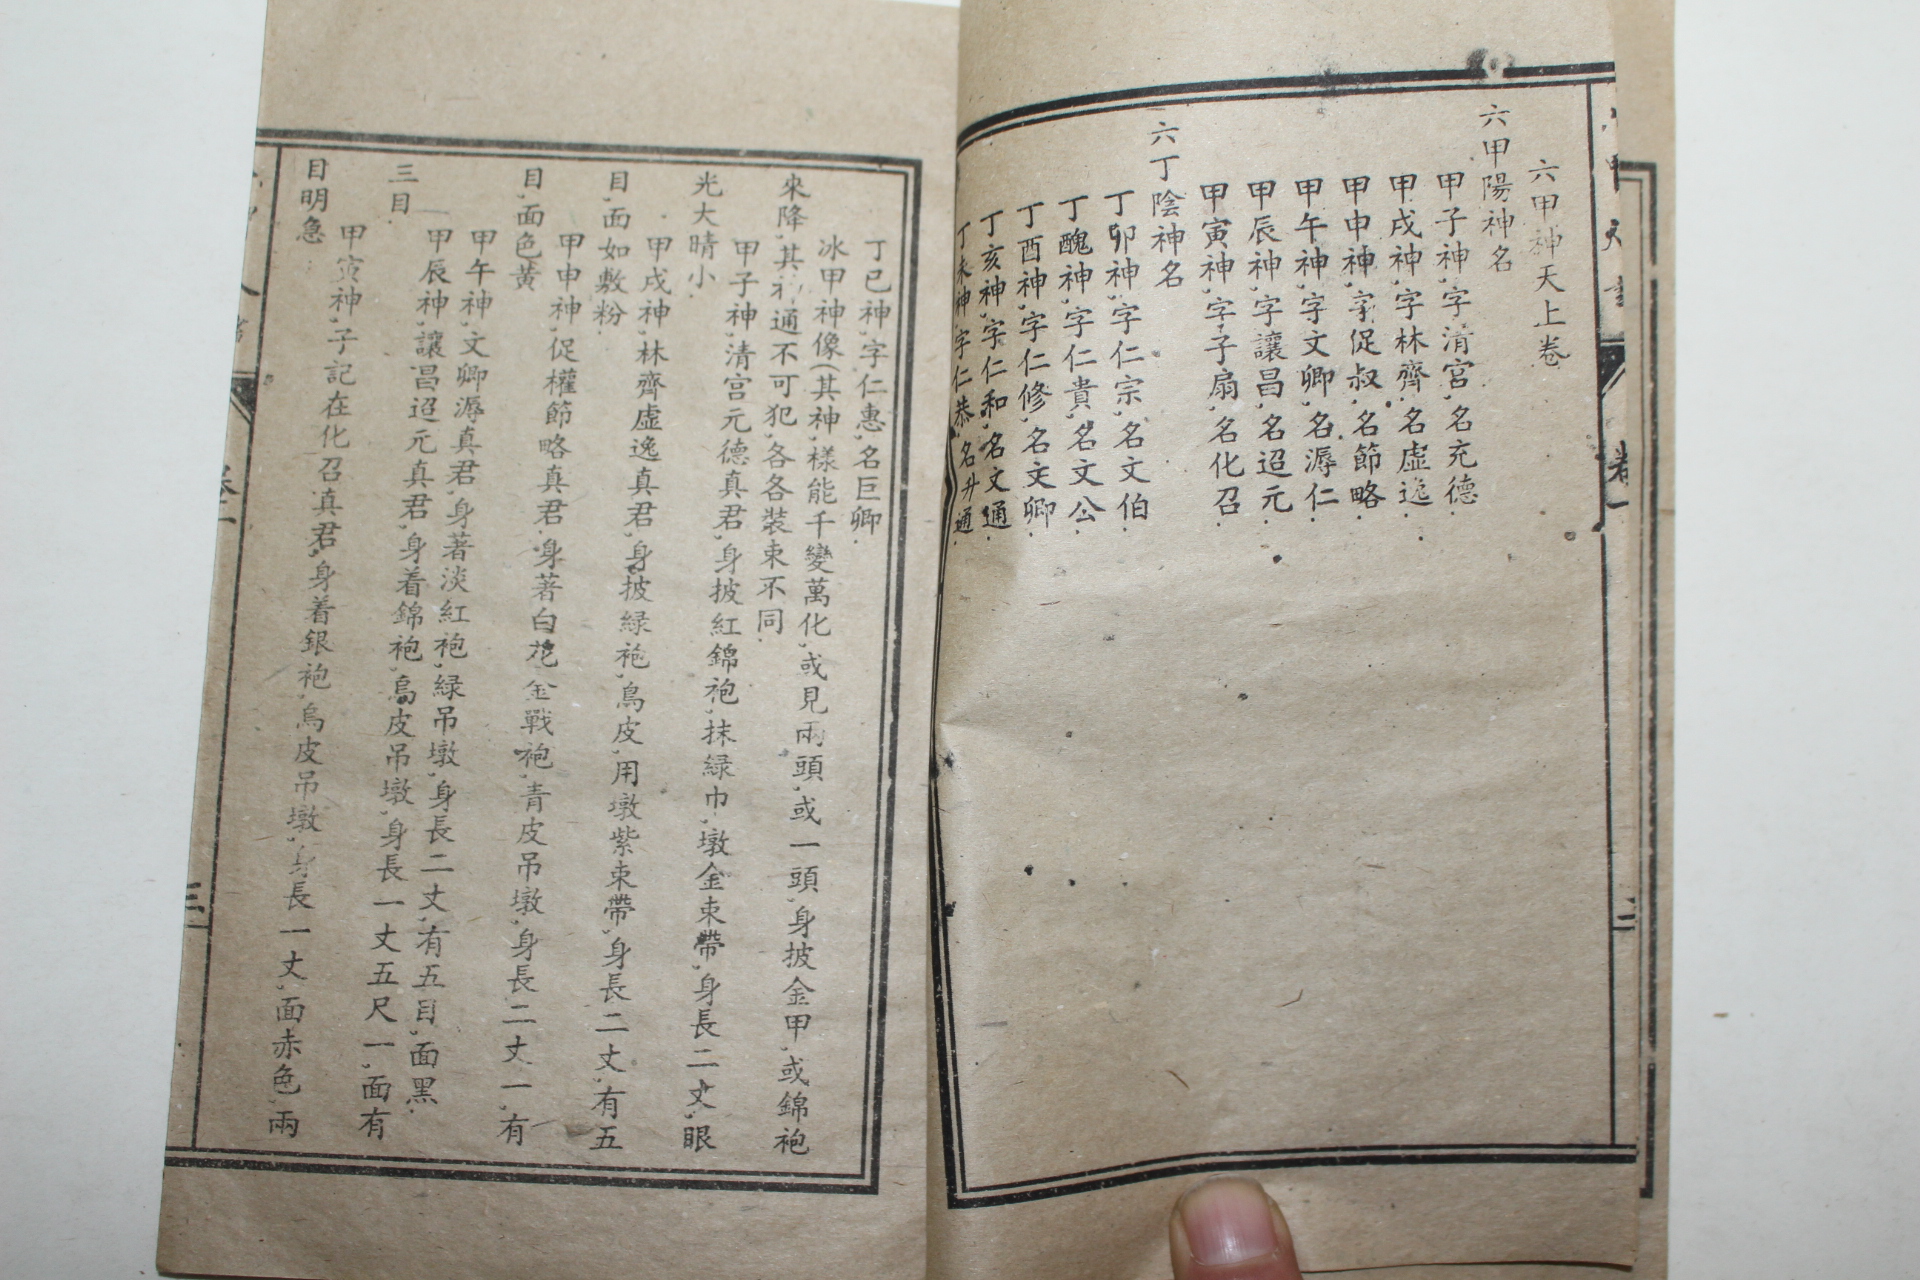 六甲神天上卷
六甲陽神名
甲子神,字淯宮,名充德.
甲戌神,字林齊,名虛逸.
甲申神,字促叔,名節略.
甲午神,字文卿,名溽仁.
甲辰神,字讓昌,名迢元.
甲寅神,字子扇,名化召.
六丁陰神名
丁卯神,字仁宗,名文伯.
丁醜神,字仁貴,名文公.
丁酉神,字仁修,名文卿.
丁亥神,字仁和,名文通.
丁未神,字仁恭,名升通.
丁巳神,字仁惠,名巨卿.
冰甲神像(其神,樣能千變萬化,或見兩頭,或一頭,身披金甲,或錦袍
來降,其神通不可犯,各各裝束不同.
甲子神,清宮元德真君,身披紅錦袍,抹緑巾,墩金束帶,身長二丈,眼
光大晴小.
甲戌神,林齊虛逸真君,身披緑袍,鳥皮,用墩紫束帶,身長二丈,有五
目,面如敷粉.
甲申神,促權節略真君,身著白花金戰袍,青皮吊墩,身長二丈一,有
目,面色黄
甲午神,文卿溽真君,身著淡紅袍,緑吊墩,身長二丈,有五目,面黑.
甲辰神,讓昌迢元真君,身着錦袍,烏皮吊墩,身長一丈五尺一,面有
三目.
甲寅神,子記在化召真君,身着銀袍,烏皮吊墩,身長一丈,面赤色,兩
目明急.
卷一
二
三